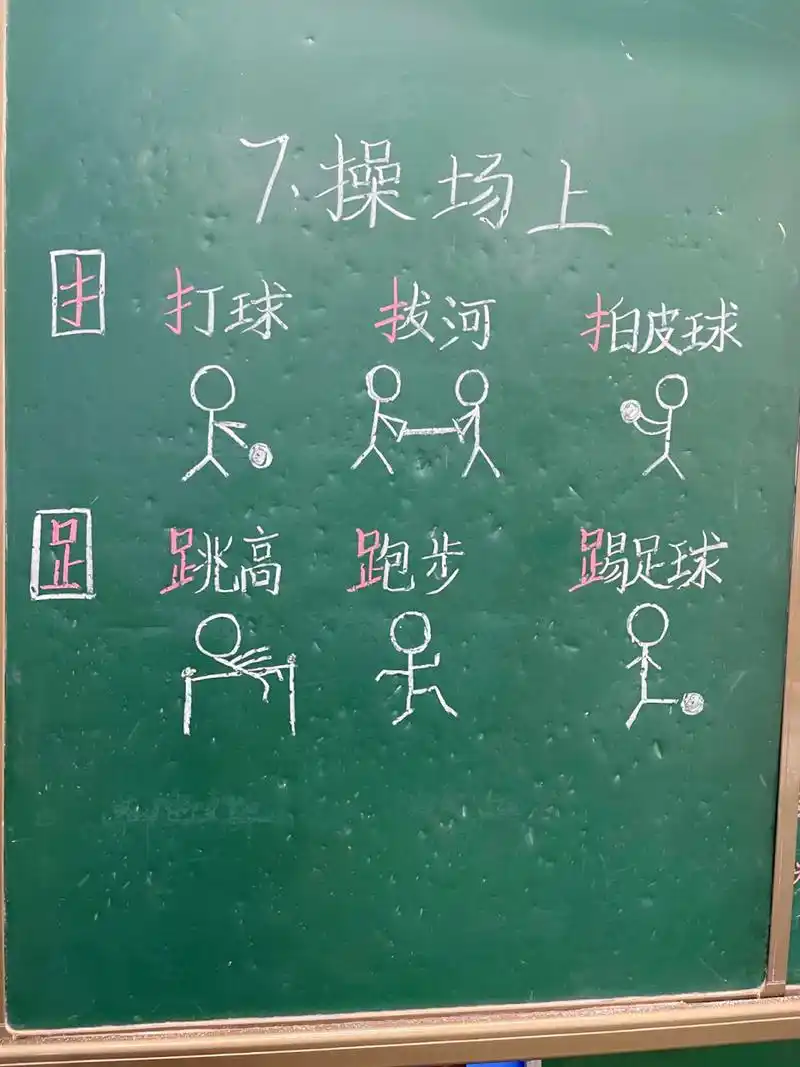 7、操场上
扌 打球 拔河 拍皮球
⻊ 跳高 跑步 踢足球